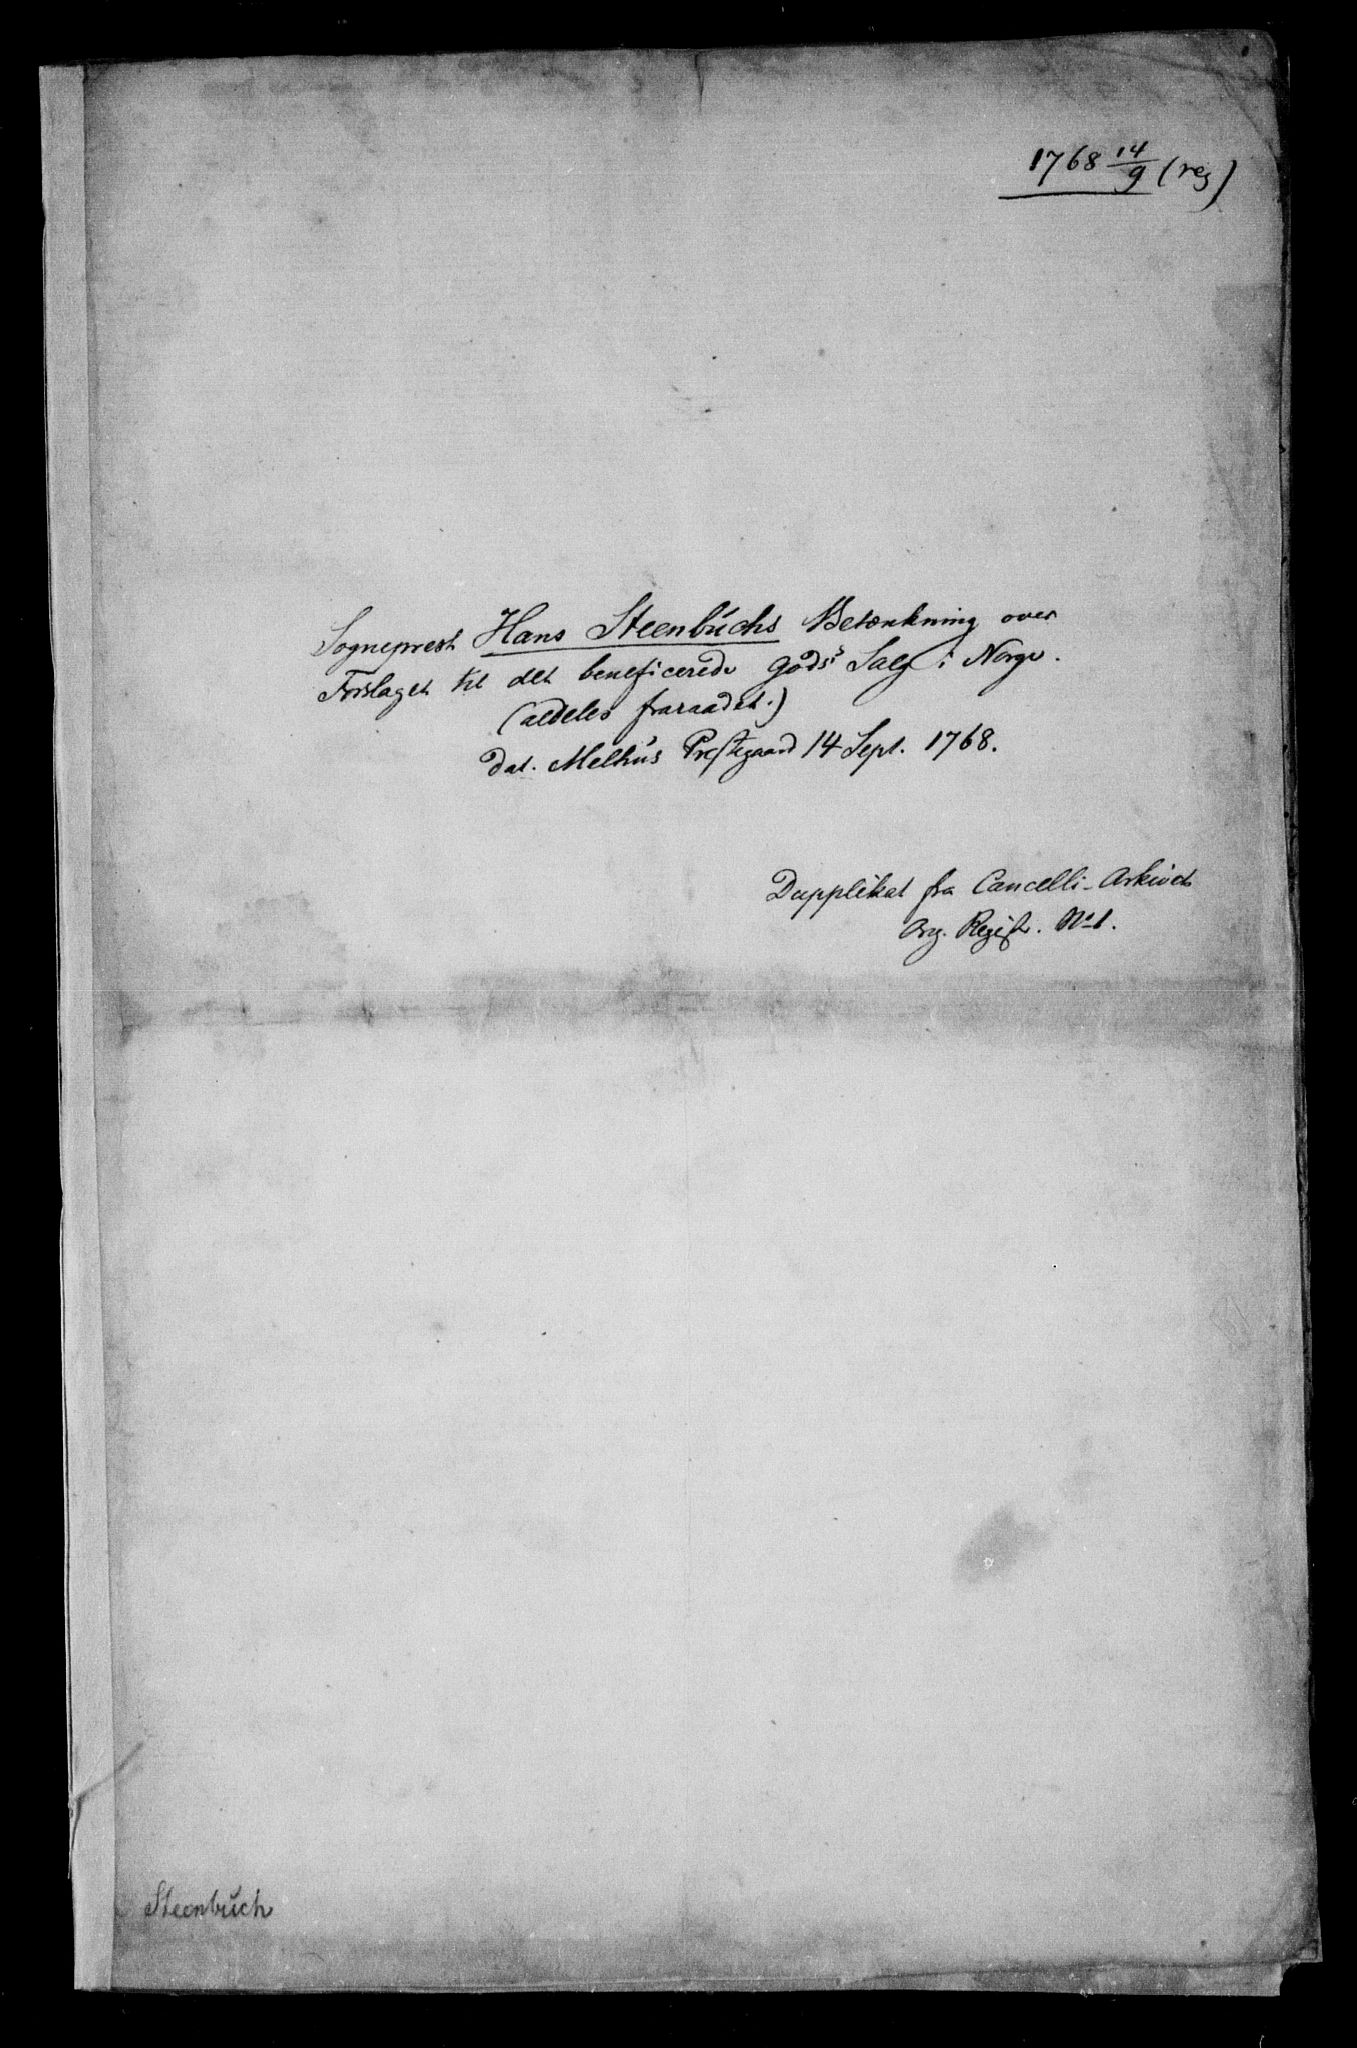 1768 14/9 (reg)
Sogneprest Hans Steenbúchs Betænkning over
Forslaget til det beneficerede Gods's Salg i Norge.
(aldeles fraraadet.)
dat. Melhús Prestegaard 14 Sept. 1768.
Dupplikat fra Cancelli-Arkivet
Registr. No 1.
Steenbúch